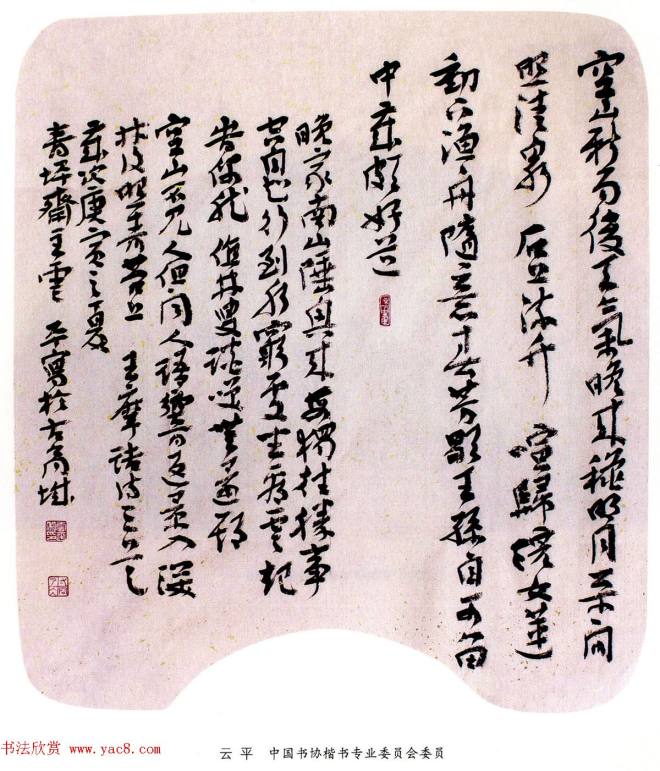 空山新雨後天氣晚来秋明月松间
照清泉石上流竹喧歸浣女蓮
動下漁舟隨意春芳歇王孫自可留
中歲頗好道
晚家南山陲興来每獨往勝事
空自知行到水窮處坐看雲起
时偶然值林叟談笑無還期
空山不见人但闻人語響返景入深
林復照青苔上 王摩诘诗三首
歲次庚寅之夏
青坪齋主雲平寫於古商城
书法欣赏 www.yac8.com
云平 中国书协楷书专业委员会委员